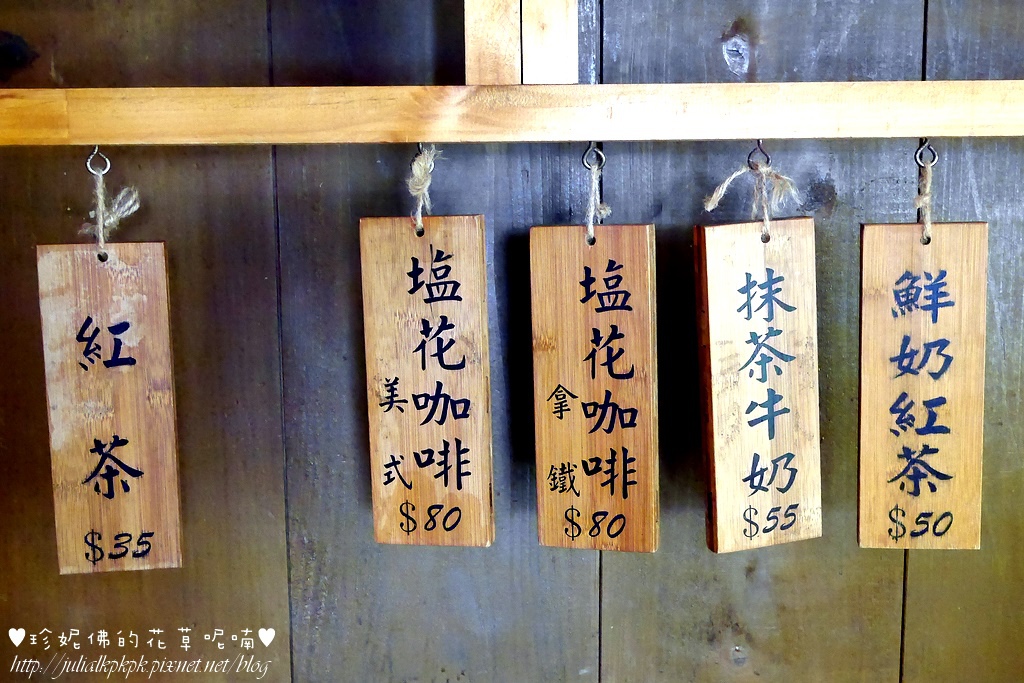 紅茶
$35
塩花咖啡
美式
$80
塩花咖啡
拿鐵
$80
抹茶牛奶
$55
鮮奶紅茶
$50
♥珍妮佛的花草呢喃♥
http://julialkpkpk.pixnet.net/blog